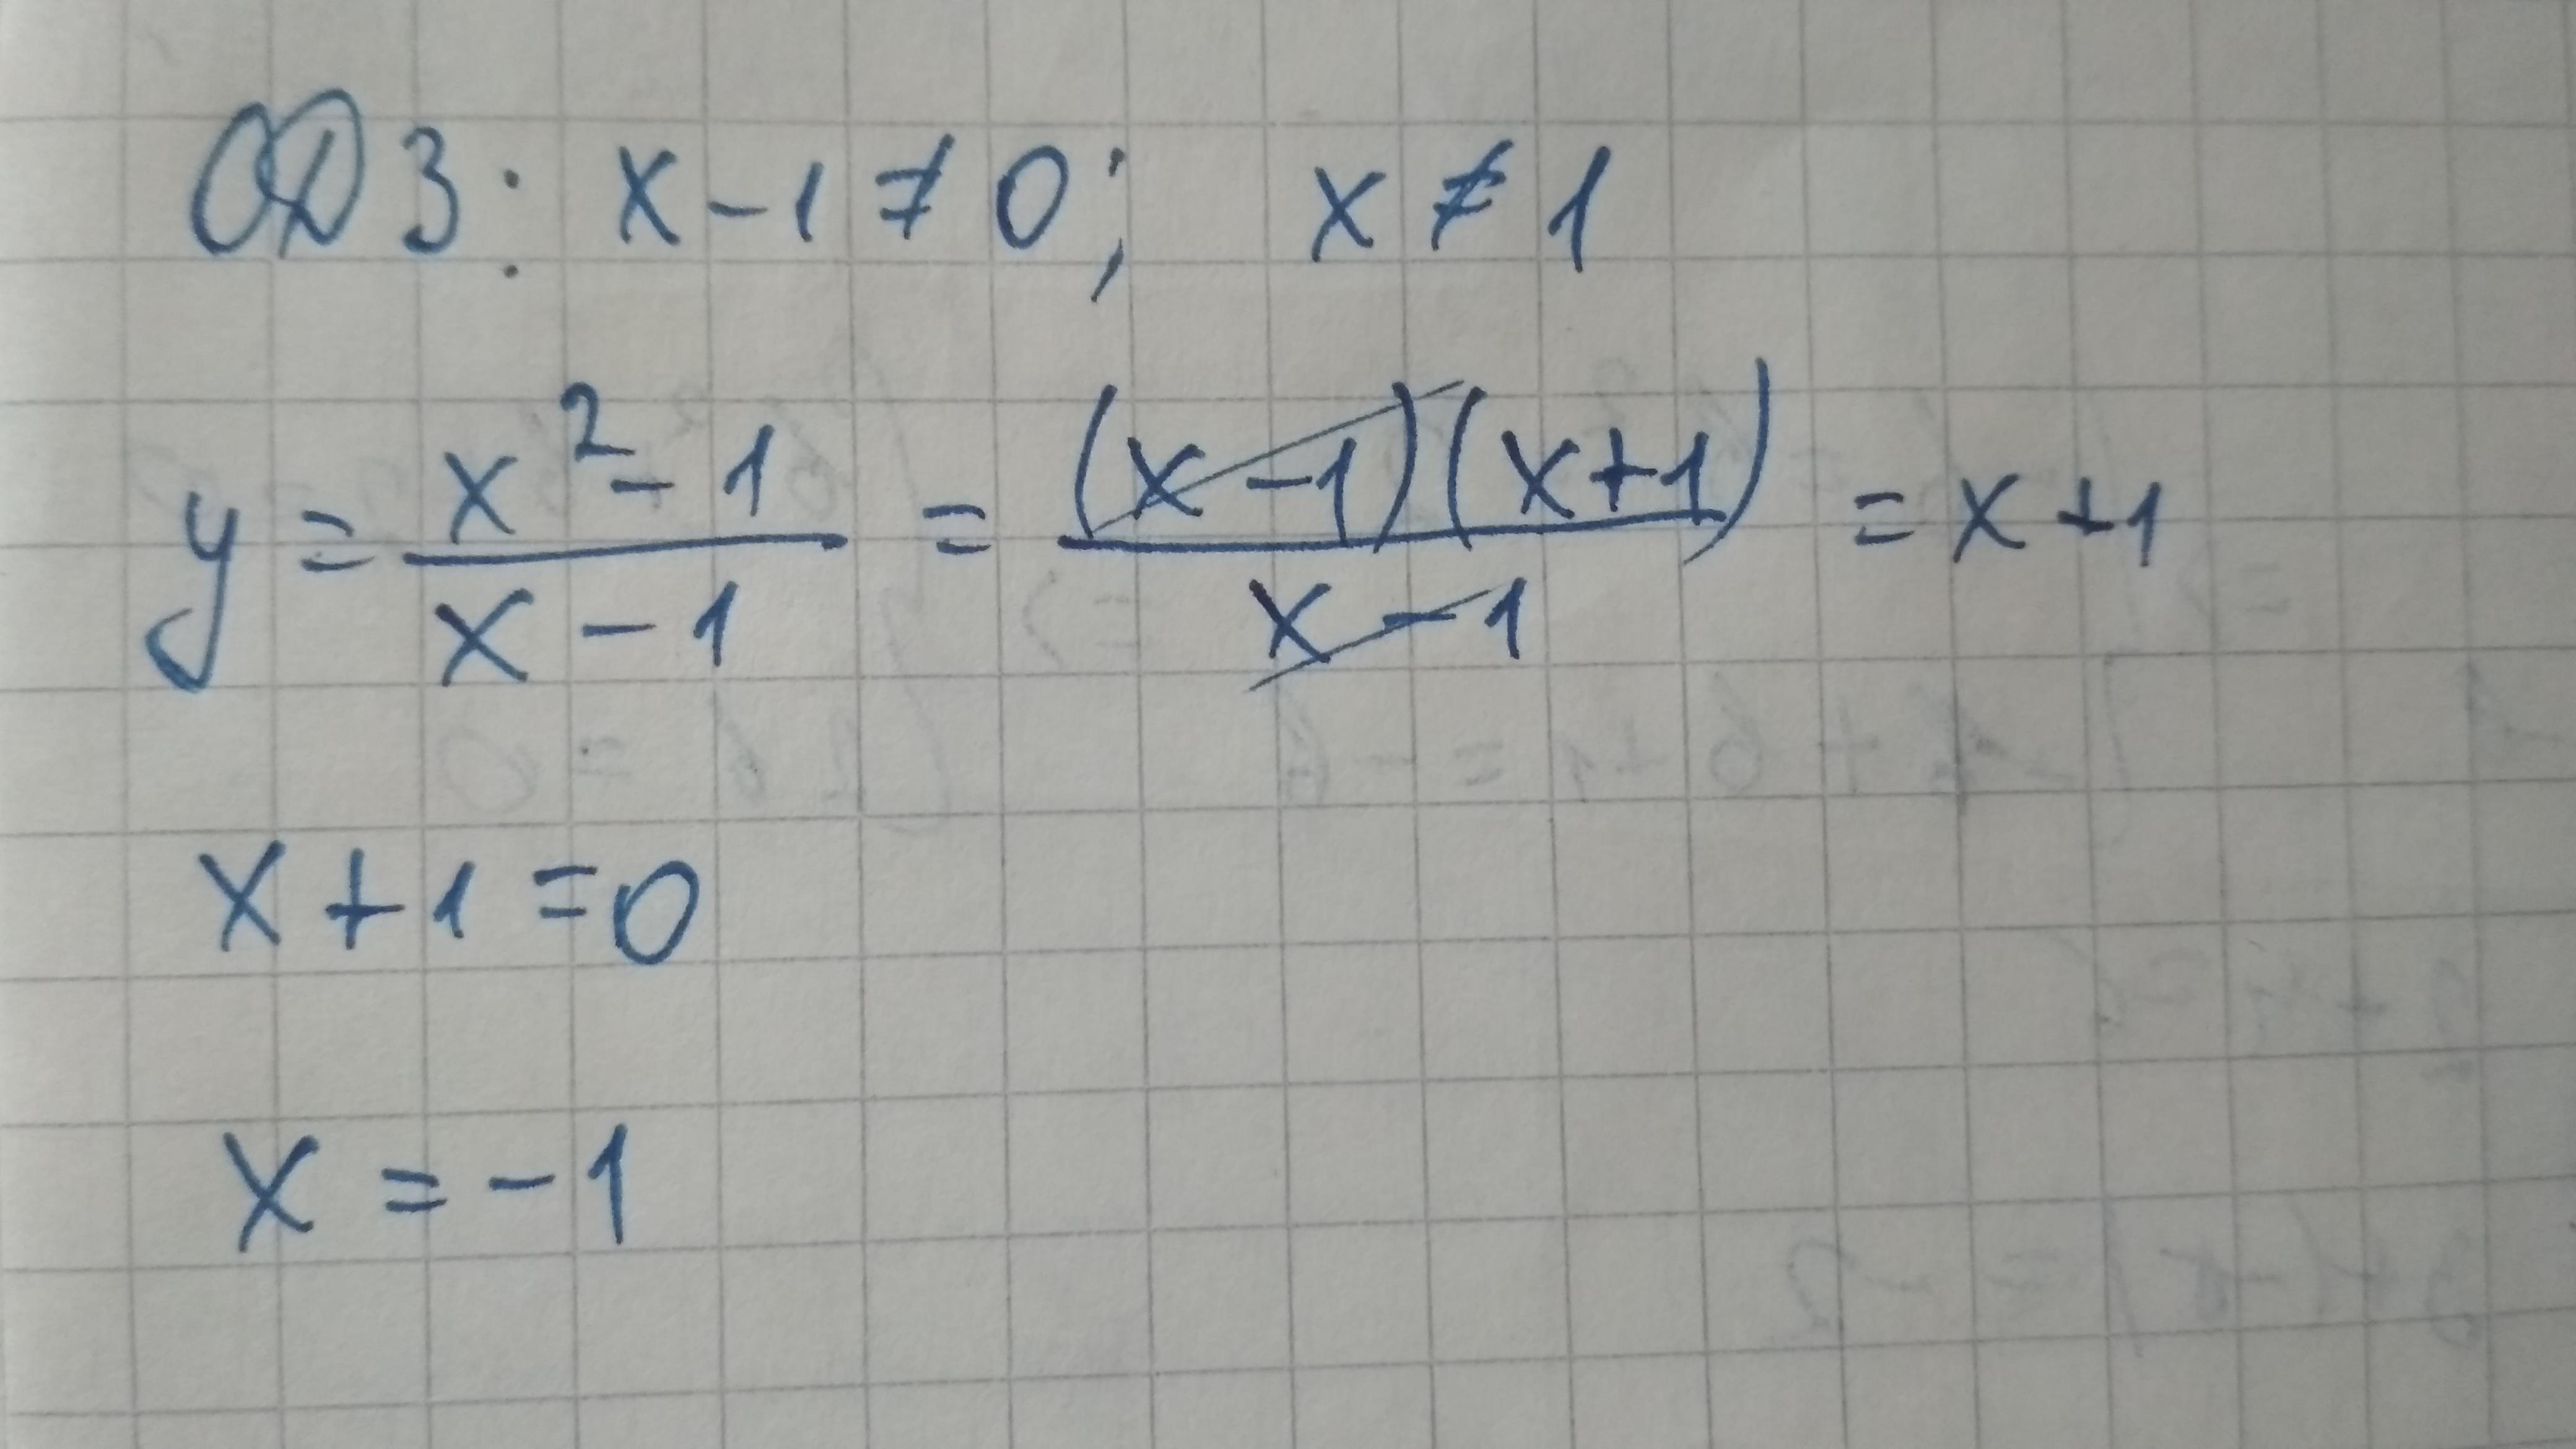 ОДЗ: x - 1 ≠ 0; x ≠ 1
y = \frac{x^2 - 1}{x - 1} = \frac{(x - 1)(x + 1)}{x - 1} = x + 1
x + 1 = 0
x = -1